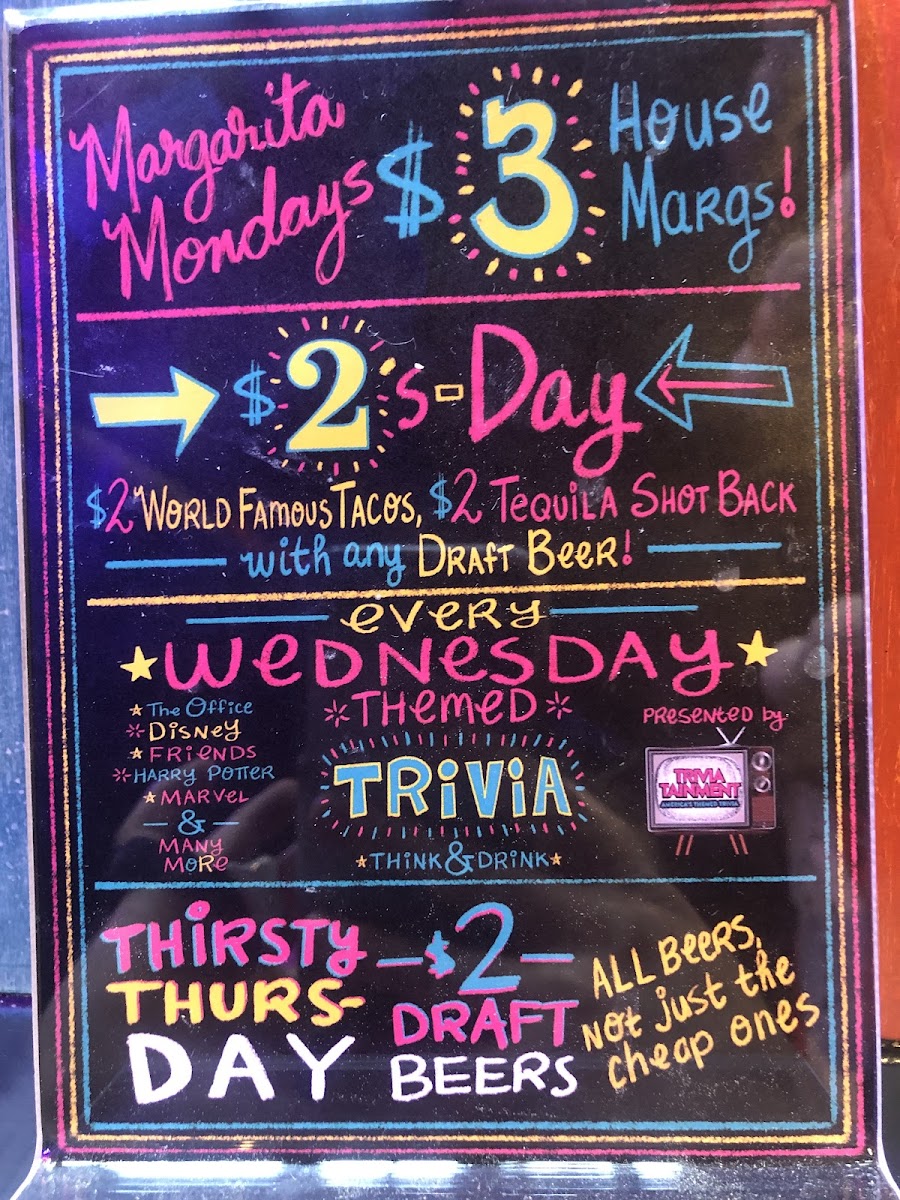 Margarita Mondays $3 House Margs!
$2s-Day
$2 World Famous Tacos, $2 Tequila Shot Back
with any Draft Beer!
every
Wednesday
Themed
Trivia
Think & Drink
The Office
Disney
Friends
Harry Potter
Marvel
&
Many
More
Presented by
TRIVIA
TAINMENT
AMERICA'S THEMED TRIVIA
THIRSTY
THURS-
DAY
$2
DRAFT
BEERS
ALL BEERS,
NOT just the
cheap ones